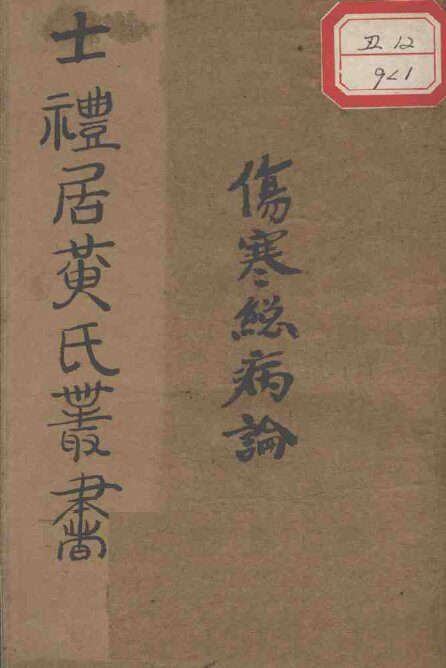 丑 12
921
傷寒緫病論
士禮居黄氏叢書